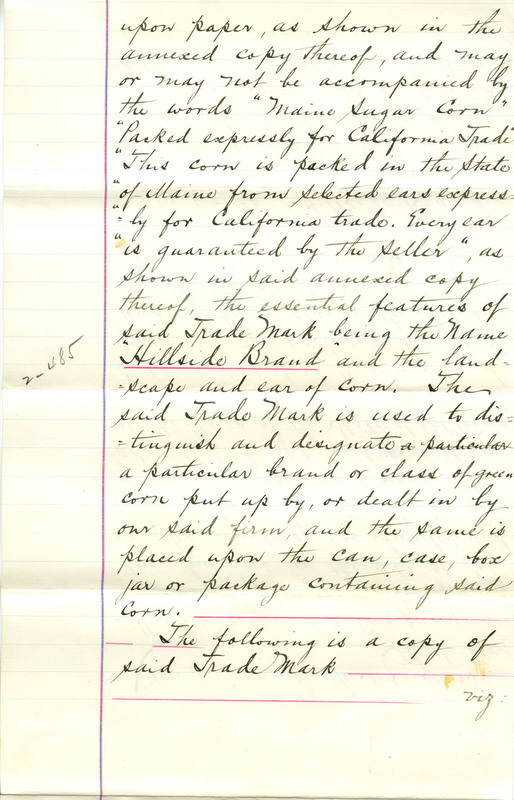 upon paper, as shown in the
annexed copy thereof, and may
or may not be accompanied by
the words "Maine Sugar Corn"
"Packed expressly for California Trade"
"This corn is packed in the State
"of Maine from selected ears express=
"=ly for California trade. Every ear
"is guaranteed by the seller", as
shown in said annexed copy
thereof, the essential features of
said Trade Mark being the Name
"Hillside Brand" and the land=
=scape and ear of corn. The
said Trade Mark is used to dis=
=tinguish and designate a particular
a particular brand or class of green
corn put up by, or dealt in by
our said firm, and the same is
placed upon the can, case, box
jar or package containing said
corn.
The following is a copy of
said Trade Mark
viz:
2-485